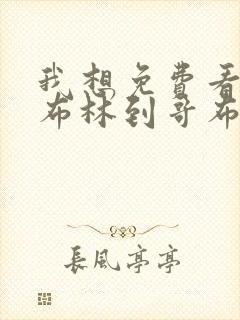 我想免費看
布林到哥布
長風亭亭